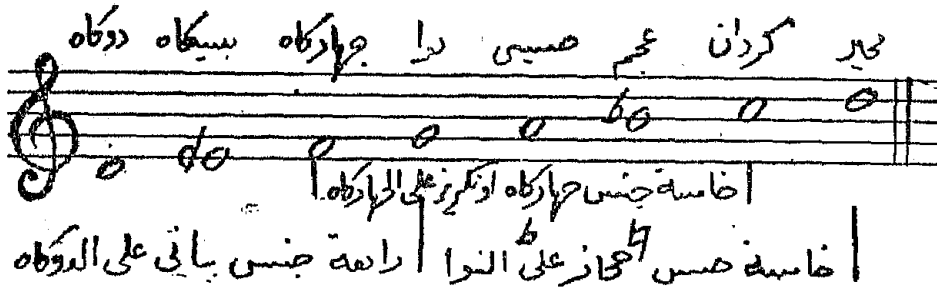 محير كردان عجم حسيني نوا جهاركاه سيكاه دوكاه
خامسة جنس جهاركاه او نكريز على الجهاركاه
خامسة جنس الحجاز على النوا | رابعة جنس بياتي على الدوكاه